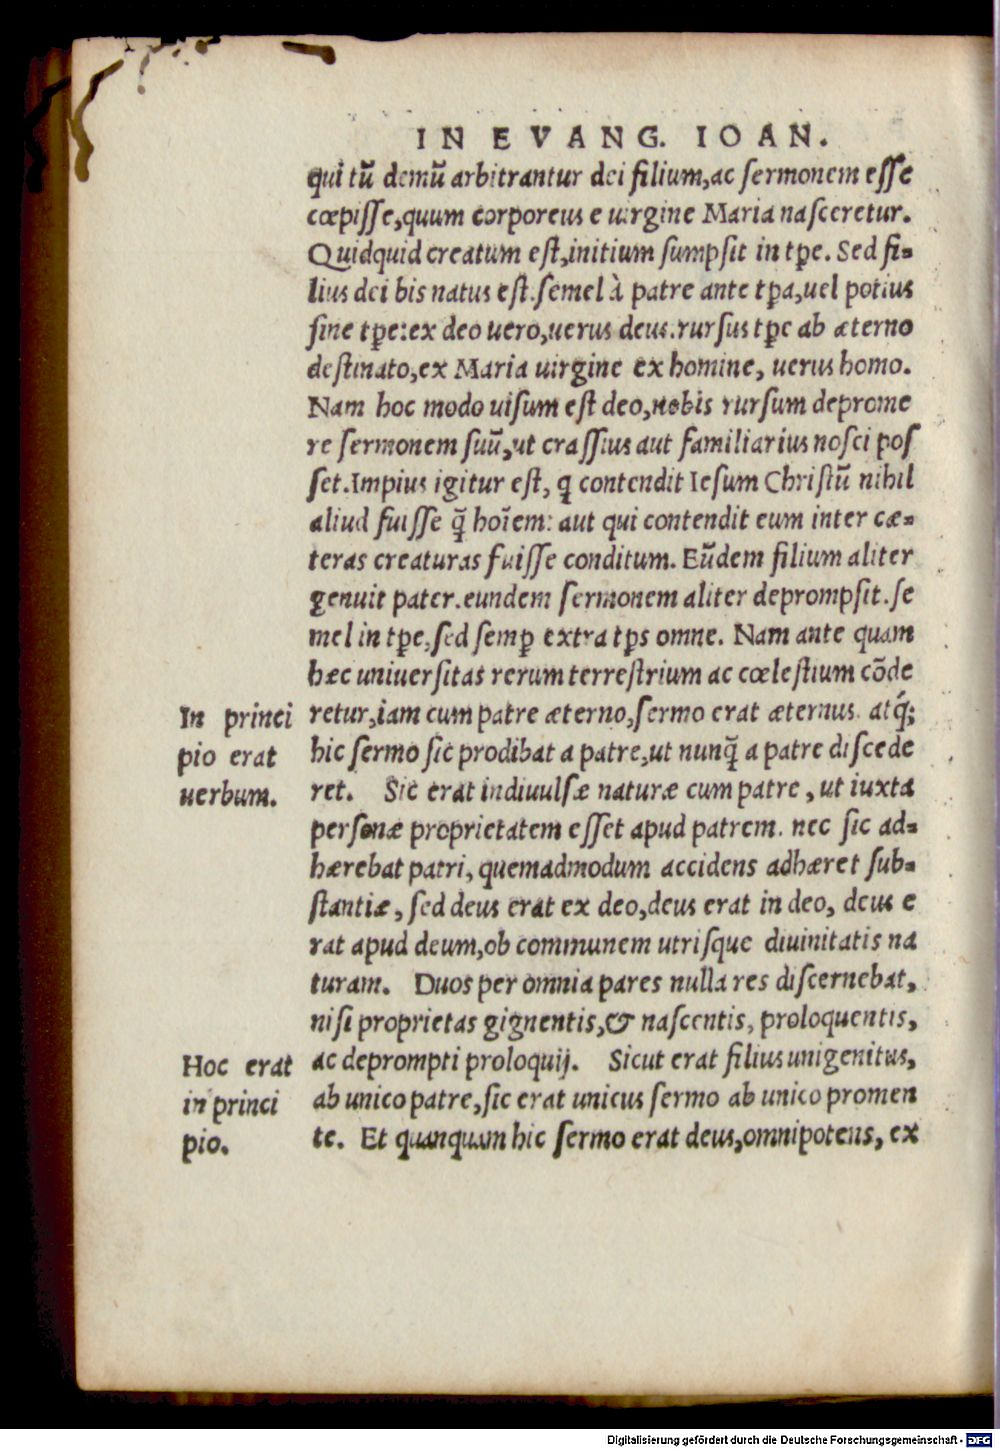 IN EVANG. IOAN.
qui tũ demũ arbitrantur dei filium,ac ſermonem eſſe
cœpiſſe,quum corporeus e uirgine Maria naſceretur.
Quidquid creatum eſt,initium ſumpſit in tꝑe. Sed fi⸗
lius dei bis natus eſt.ſemel à patre ante tꝑa,uel potius
ſine tꝑe:ex deo uero,uerus deus.rurſus tꝑe ab æterno
deſtinato,ex Maria uirgine ex homine, uerus homo.
Nam hoc modo uiſum eſt deo,nobis rurſum deprome
re ſermonem ſuũ,ut craſſius aut familiarius noſci poſ
ſet.Impius igitur eſt, q̨ contendit Ieſum Chriſtũ nihil
aliud fuiſſe q̃ hoĩem: aut qui contendit eum inter cæ⸗
teras creaturas fuiſſe conditum. Eũdem filium aliter
genuit pater.eundem ſermonem aliter deprompſit.ſe
mel in tꝑe,ſed ſemꝑ extra tꝑs omne. Nam ante quam
hæc uniuerſitas rerum terreſtrium ac cœleſtium cõde
In princi retur,iam cum patre æterno,ſermo erat æternus. atq́;
pio erat hic ſermo ſic prodibat a patre,ut nunq̃ a patre diſcede
uerbum. ret. Sic erat indiuulſæ naturæ cum patre, ut iuxta
perſonæ proprietatem eſſet apud patrem. nec ſic ad⸗
hærebat patri, quemadmodum accidens adhæret ſub⸗
ſtantiæ, ſed deus erat ex deo,deus erat in deo, deus e
rat apud deum,ob communem utriſque diuinitatis na
turam. Duos per omnia pares nulla res diſcernebat,
niſi proprietas gignentis,& naſcentis, proloquentis,
Hoc erat ac deprompti proloquij. Sicut erat filius unigenitus,
in princi ab unico patre,ſic erat unicus ſermo ab unico promen
pio. te. Et quanquam hic ſermo erat deus,omnipotens, ex
Digitalisierung gefördert durch die Deutsche Forschungsgemeinschaft - DFG